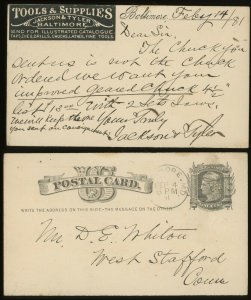 TOOLS & SUPPLIES
JACKSON & TYLER,
BALTIMORE.
SEND FOR ILLUSTRATED CATALOGUE.
TAPS, DIES, DRILLS, CHUCKS, LATHES, FINE TOOLS.
Baltimore, Feby 14/81
Dear Sir,
The Chuck you
sent us is not the chuck
ordered we want your
improved Geared Chuck 4½"
list 13.00 with 2 sets Jaws.
Yours Truly
you sent on consignment
Jackson & Tyler
POSTAL CARD.
WRITE THE ADDRESS ON THIS SIDE - THE MESSAGE ON THE OTHER
4 PM
Mr D. E. Whiton
West Stafford
Conn